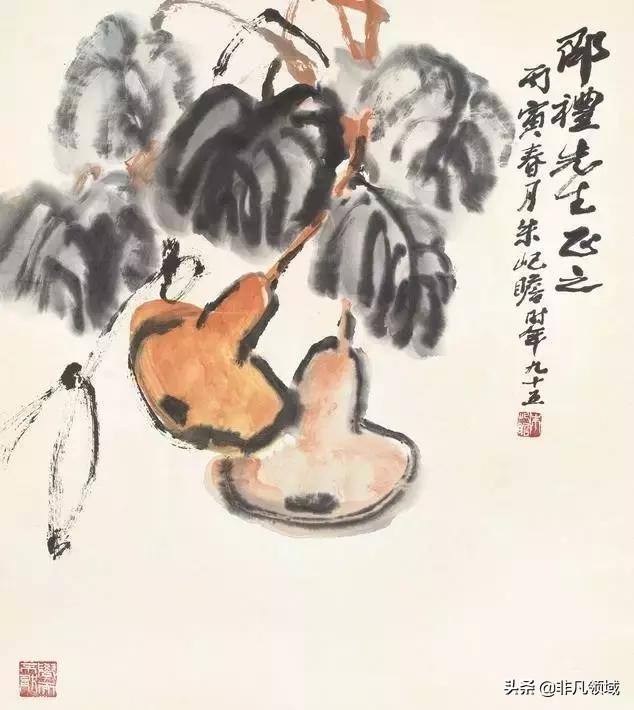 邵禮先生正之
丙寅春月朱屺瞻時年九十五
头条 @非凡领域